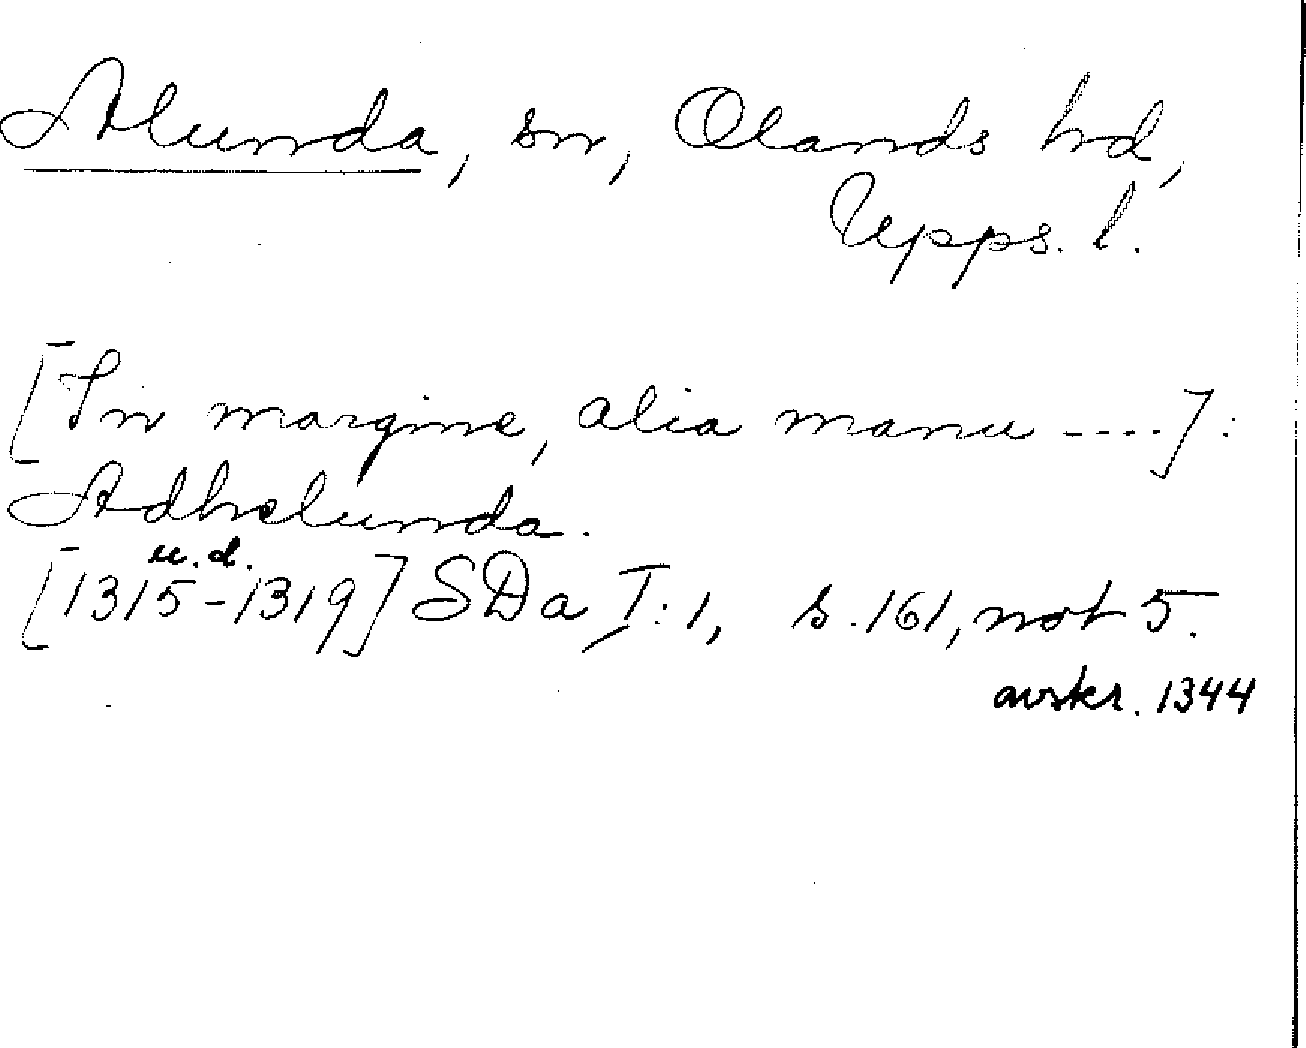 Alunda, sn, Olands hd,
Upps. l.
[In margine, alia manu ----]:
Adhelunda.
u.d.
[1315-1319] SDa I:1, s. 161, not 5.
avskr. 1344